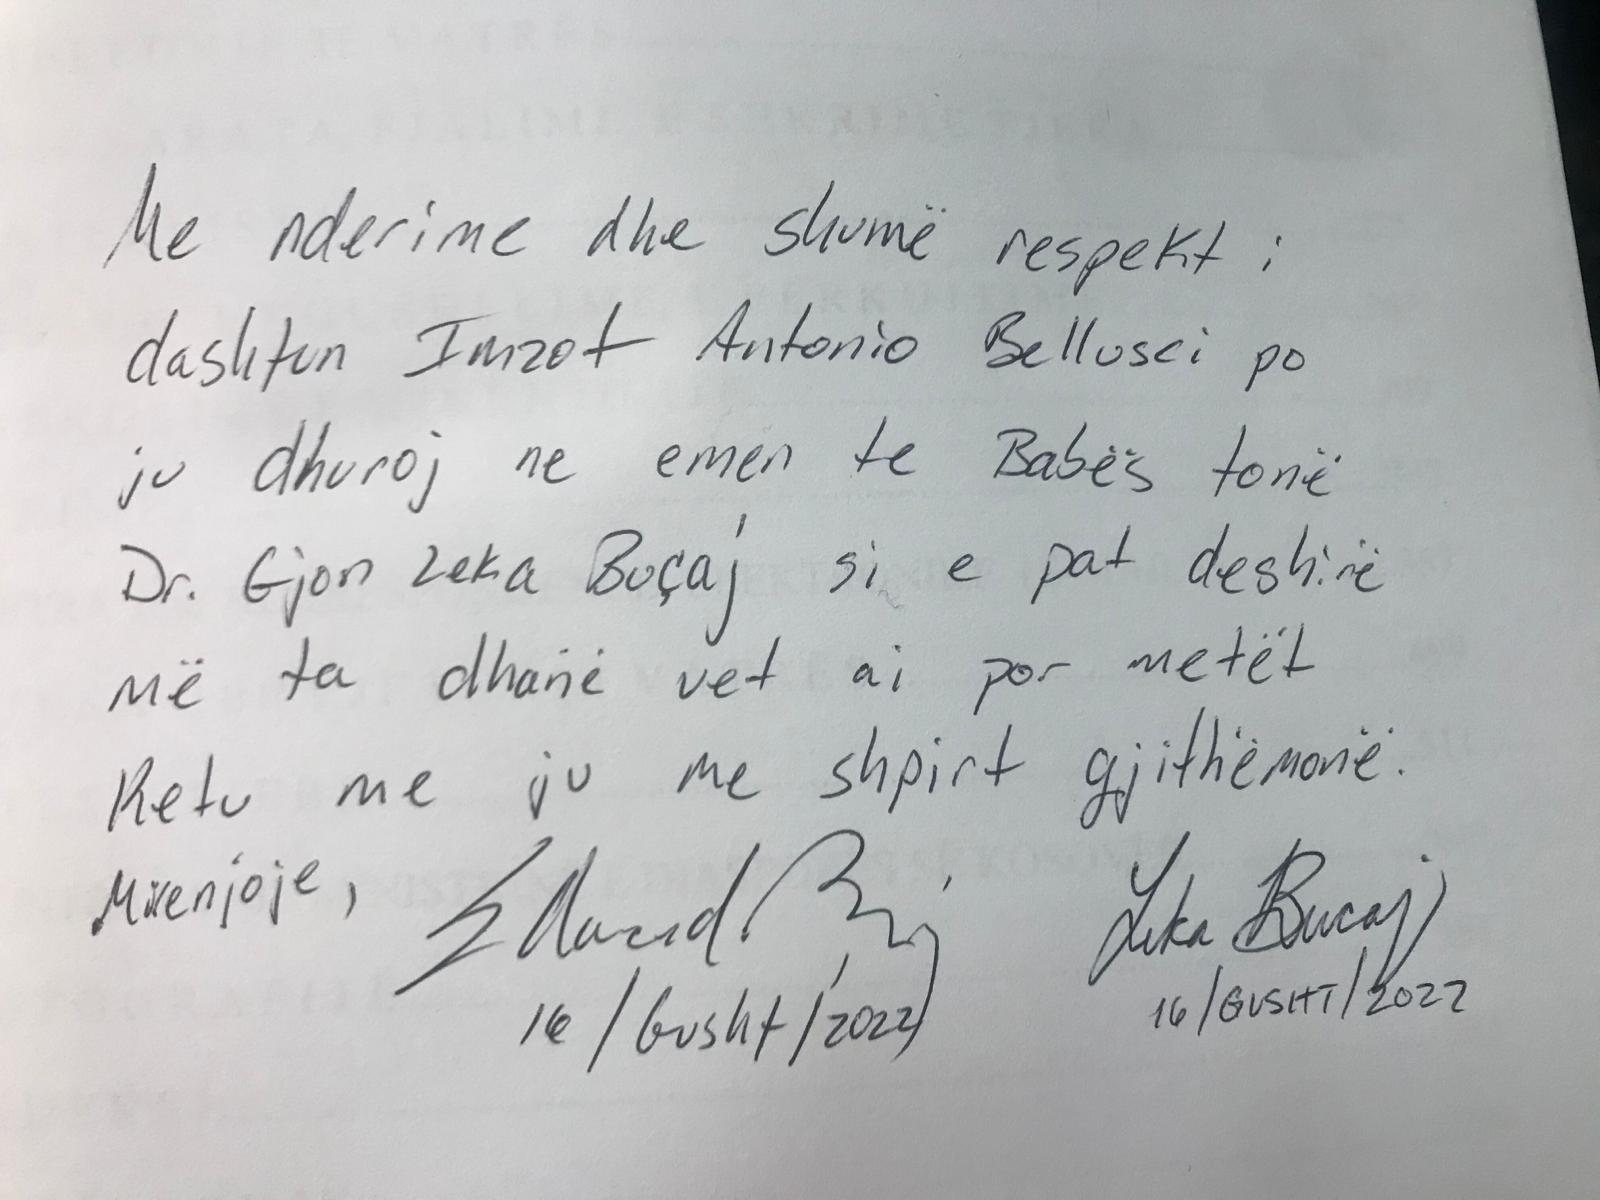 Me nderime dhe shumë respekt i
dashtun Imzot Antonio Bellusci po
ju dhuroj ne emen te Babës tonë
Dr. Gjon Leka Buçaj si e pat deshirë
më ta dhanë vet ai por metët
Ketu me ju me shpirt gjithëmonë.
Mirenjoje,
Leka Bucaj
16/Gusht/2022
16/GUSHT/2022